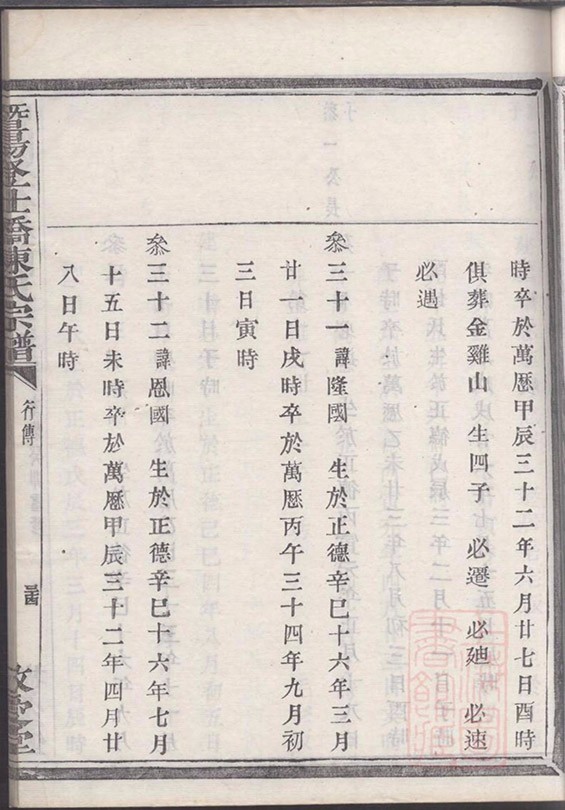 時卒於萬曆甲辰三十二年六月廿七日酉時
俱葬金雞山 生四子 必遷 必廸 必速
必遇
叅三十一 諱隆國 生於正德辛巳十六年三月
廿一日戌時卒於萬曆丙午三十四年九月初
三日寅時
叅三十二 諱恩國 生於正德辛巳十六年七月
十五日未時卒於萬曆甲辰三十二年四月廿
八日午時
暨陽 橋陳氏宗譜
行傳